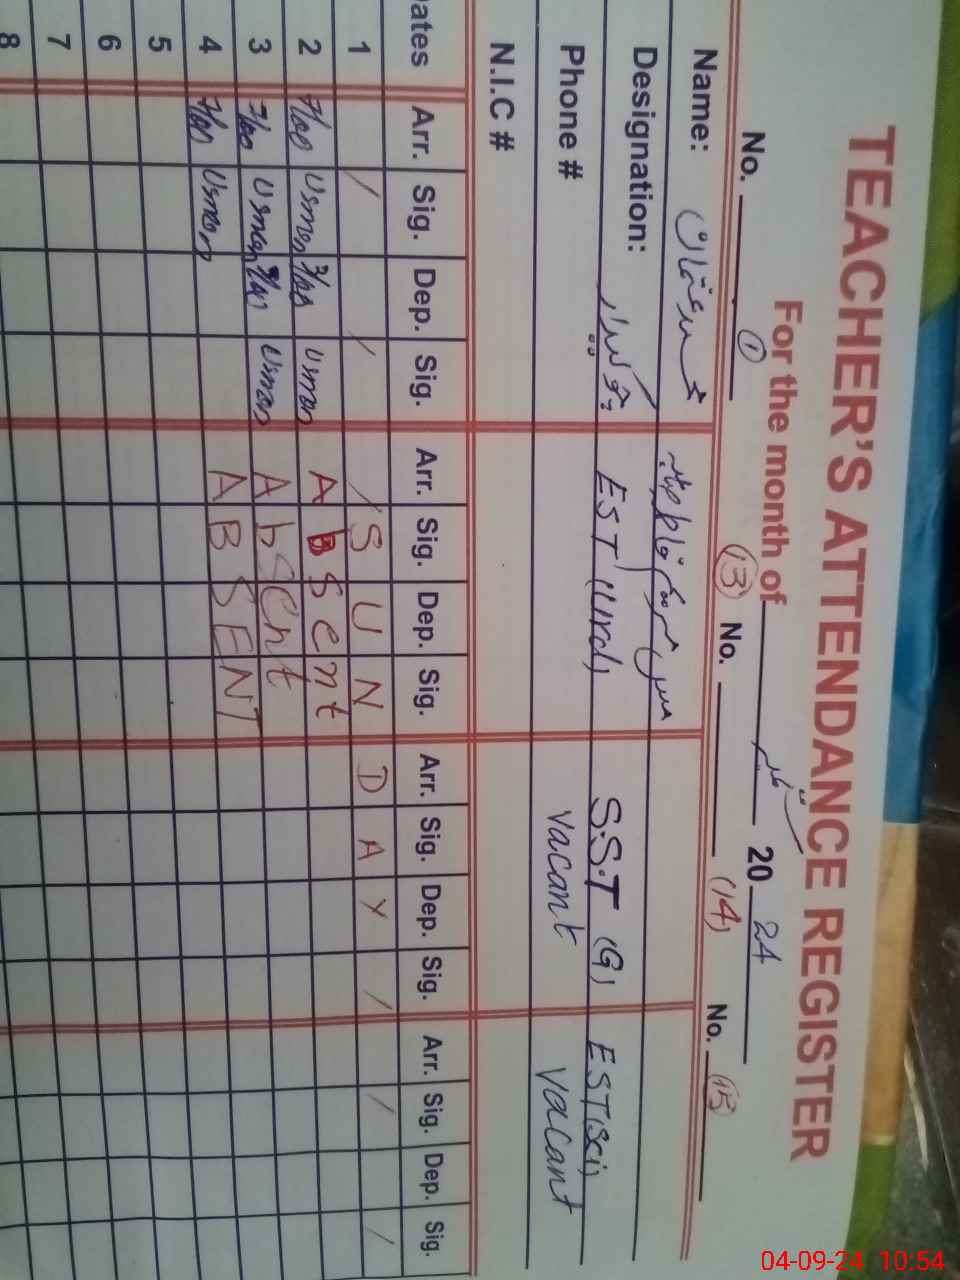 TEACHER'S ATTENDANCE REGISTER
For the month of ستمبر 2024
No. (1) (13) No. (14) No. (15)
Name: محمد عثمان
Designation: EST (Urd) S.S.T (G) EST(Sci)
Phone # Vacant Vacant
N.I.C #
Dates Arr. Sig. Dep. Sig. Arr. Sig. Dep. Sig. Arr. Sig. Dep. Sig. Arr. Sig. Dep. Sig.
1 / / / SUNDAY / / /
2 Usman Usman Absent
3 Usman Usman Absent
4 Usman ABSENT
5
6
7
8
04-09-24 10:54